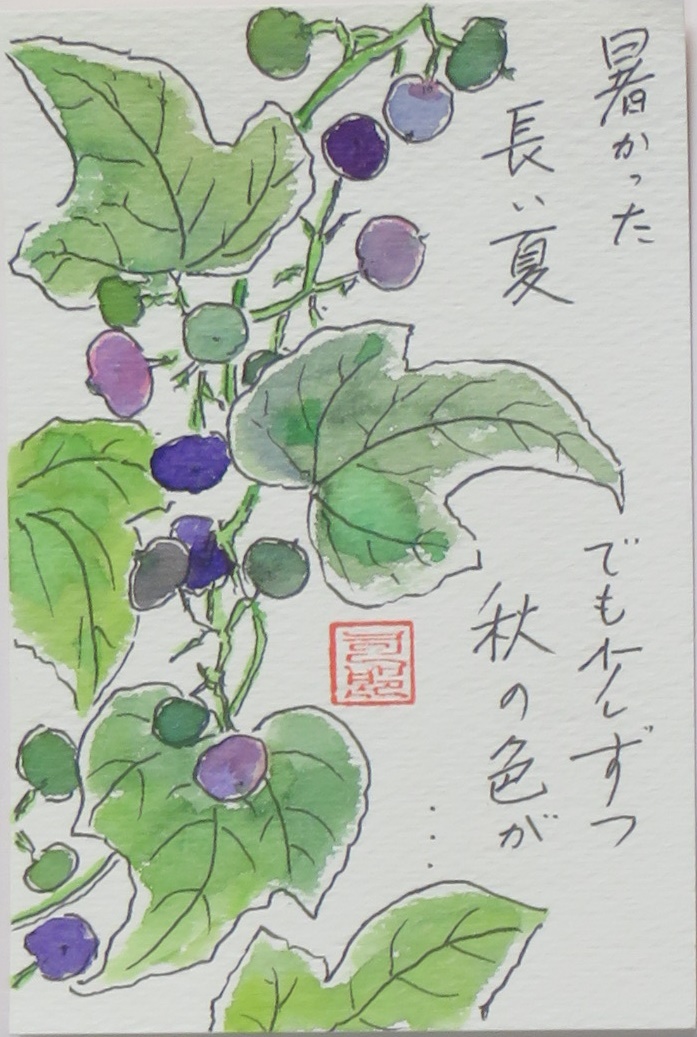 暑かった
長い夏
でも少しずつ
秋の色が
・・・